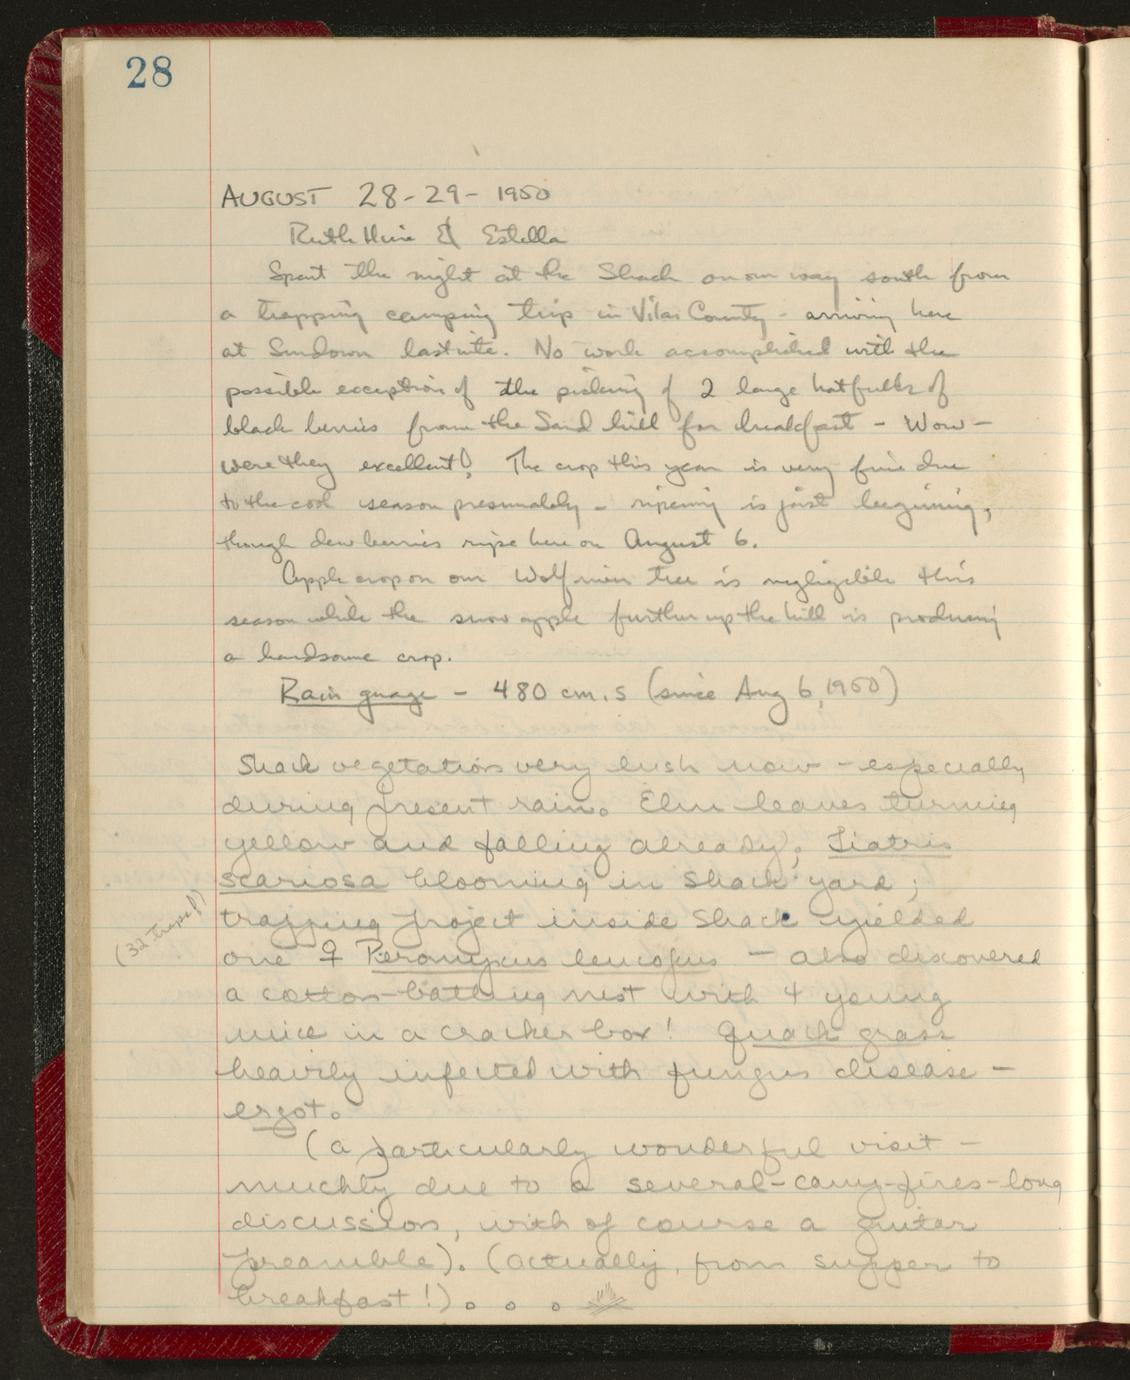 28
AUGUST 28-29- 1950
Ruth Hine & Estella
Spent the night at the Shack on our way south from
a trapping camping trip in Vilas County - arriving here
at Sundown last nite. No work accomplished with the
possible exception of the picking of 2 large hatfulls of
black berries from the Sand hill for breakfast - Wow -
were they excellent! The crop this year is very fine due
to the cool season presumably - ripening is just beginning,
though dewberries ripe here on August 6.
Apple crop on our Wolf river tree is negligible this
season while the snow apple further up the hill is producing
a handsome crop.
Rain guage - 480 cm.s (since Aug 6, 1950)
Shack vegetation very lush now - especially
during present rain. Elm leaves turning
yellow and falling already; Liatris
scariosa blooming in Shack yard;
trapping project inside Shack yielded
(32 traps!)
one ♀ Peromyscus leucopus - also discovered
a cotton-batting nest with 4 young
mice in a cracker box! Quack grass
heavily infected with fungus disease -
ergot.
(a particularly wonderful visit -
muchly due to a several-camp-fires-long
discussion, with of course a guitar
preamble). (actually, from supper to
breakfast!) . . .